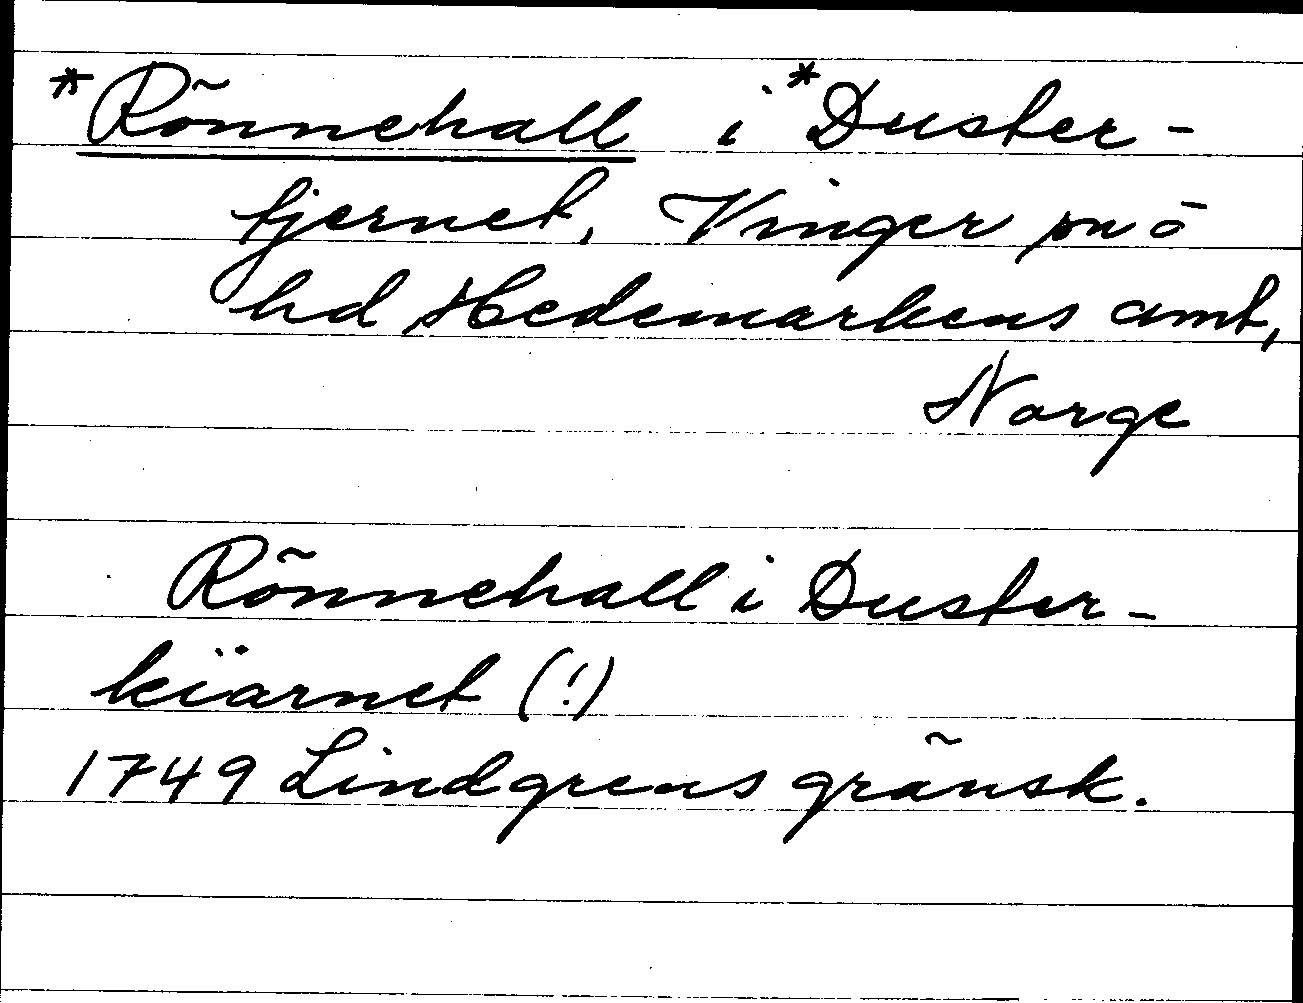 *Rönnehall i *Duster-
tjernet, Vinger sn o
hd Hedemarkens amt,
Norge
Rönnehall i Duster-
kiärnet (!)
1749 Lindgrens gränsk.